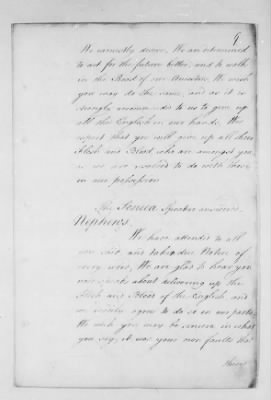 9
We earnestly desire, We are determined
to act for the future better, and to walk
in the Road of our Ancestors. We wish
you may do the same, and as it is
strongly recommended to us to give up
all the English in our hands, We
expect that you will give up all their
Flesh and Blood who are amongst you
as we are resolved to do with those
in our possession
The Seneca Speaker answered.
Nephews.
We have attended to all
you said and taken due Notice of
every word, We are glad to hear you
now speak about delivering up the
Flesh and Blood of the English, and
we firmly agree to do it on our parts,
We wish you may be sincere in what
you say, it was your own faults that